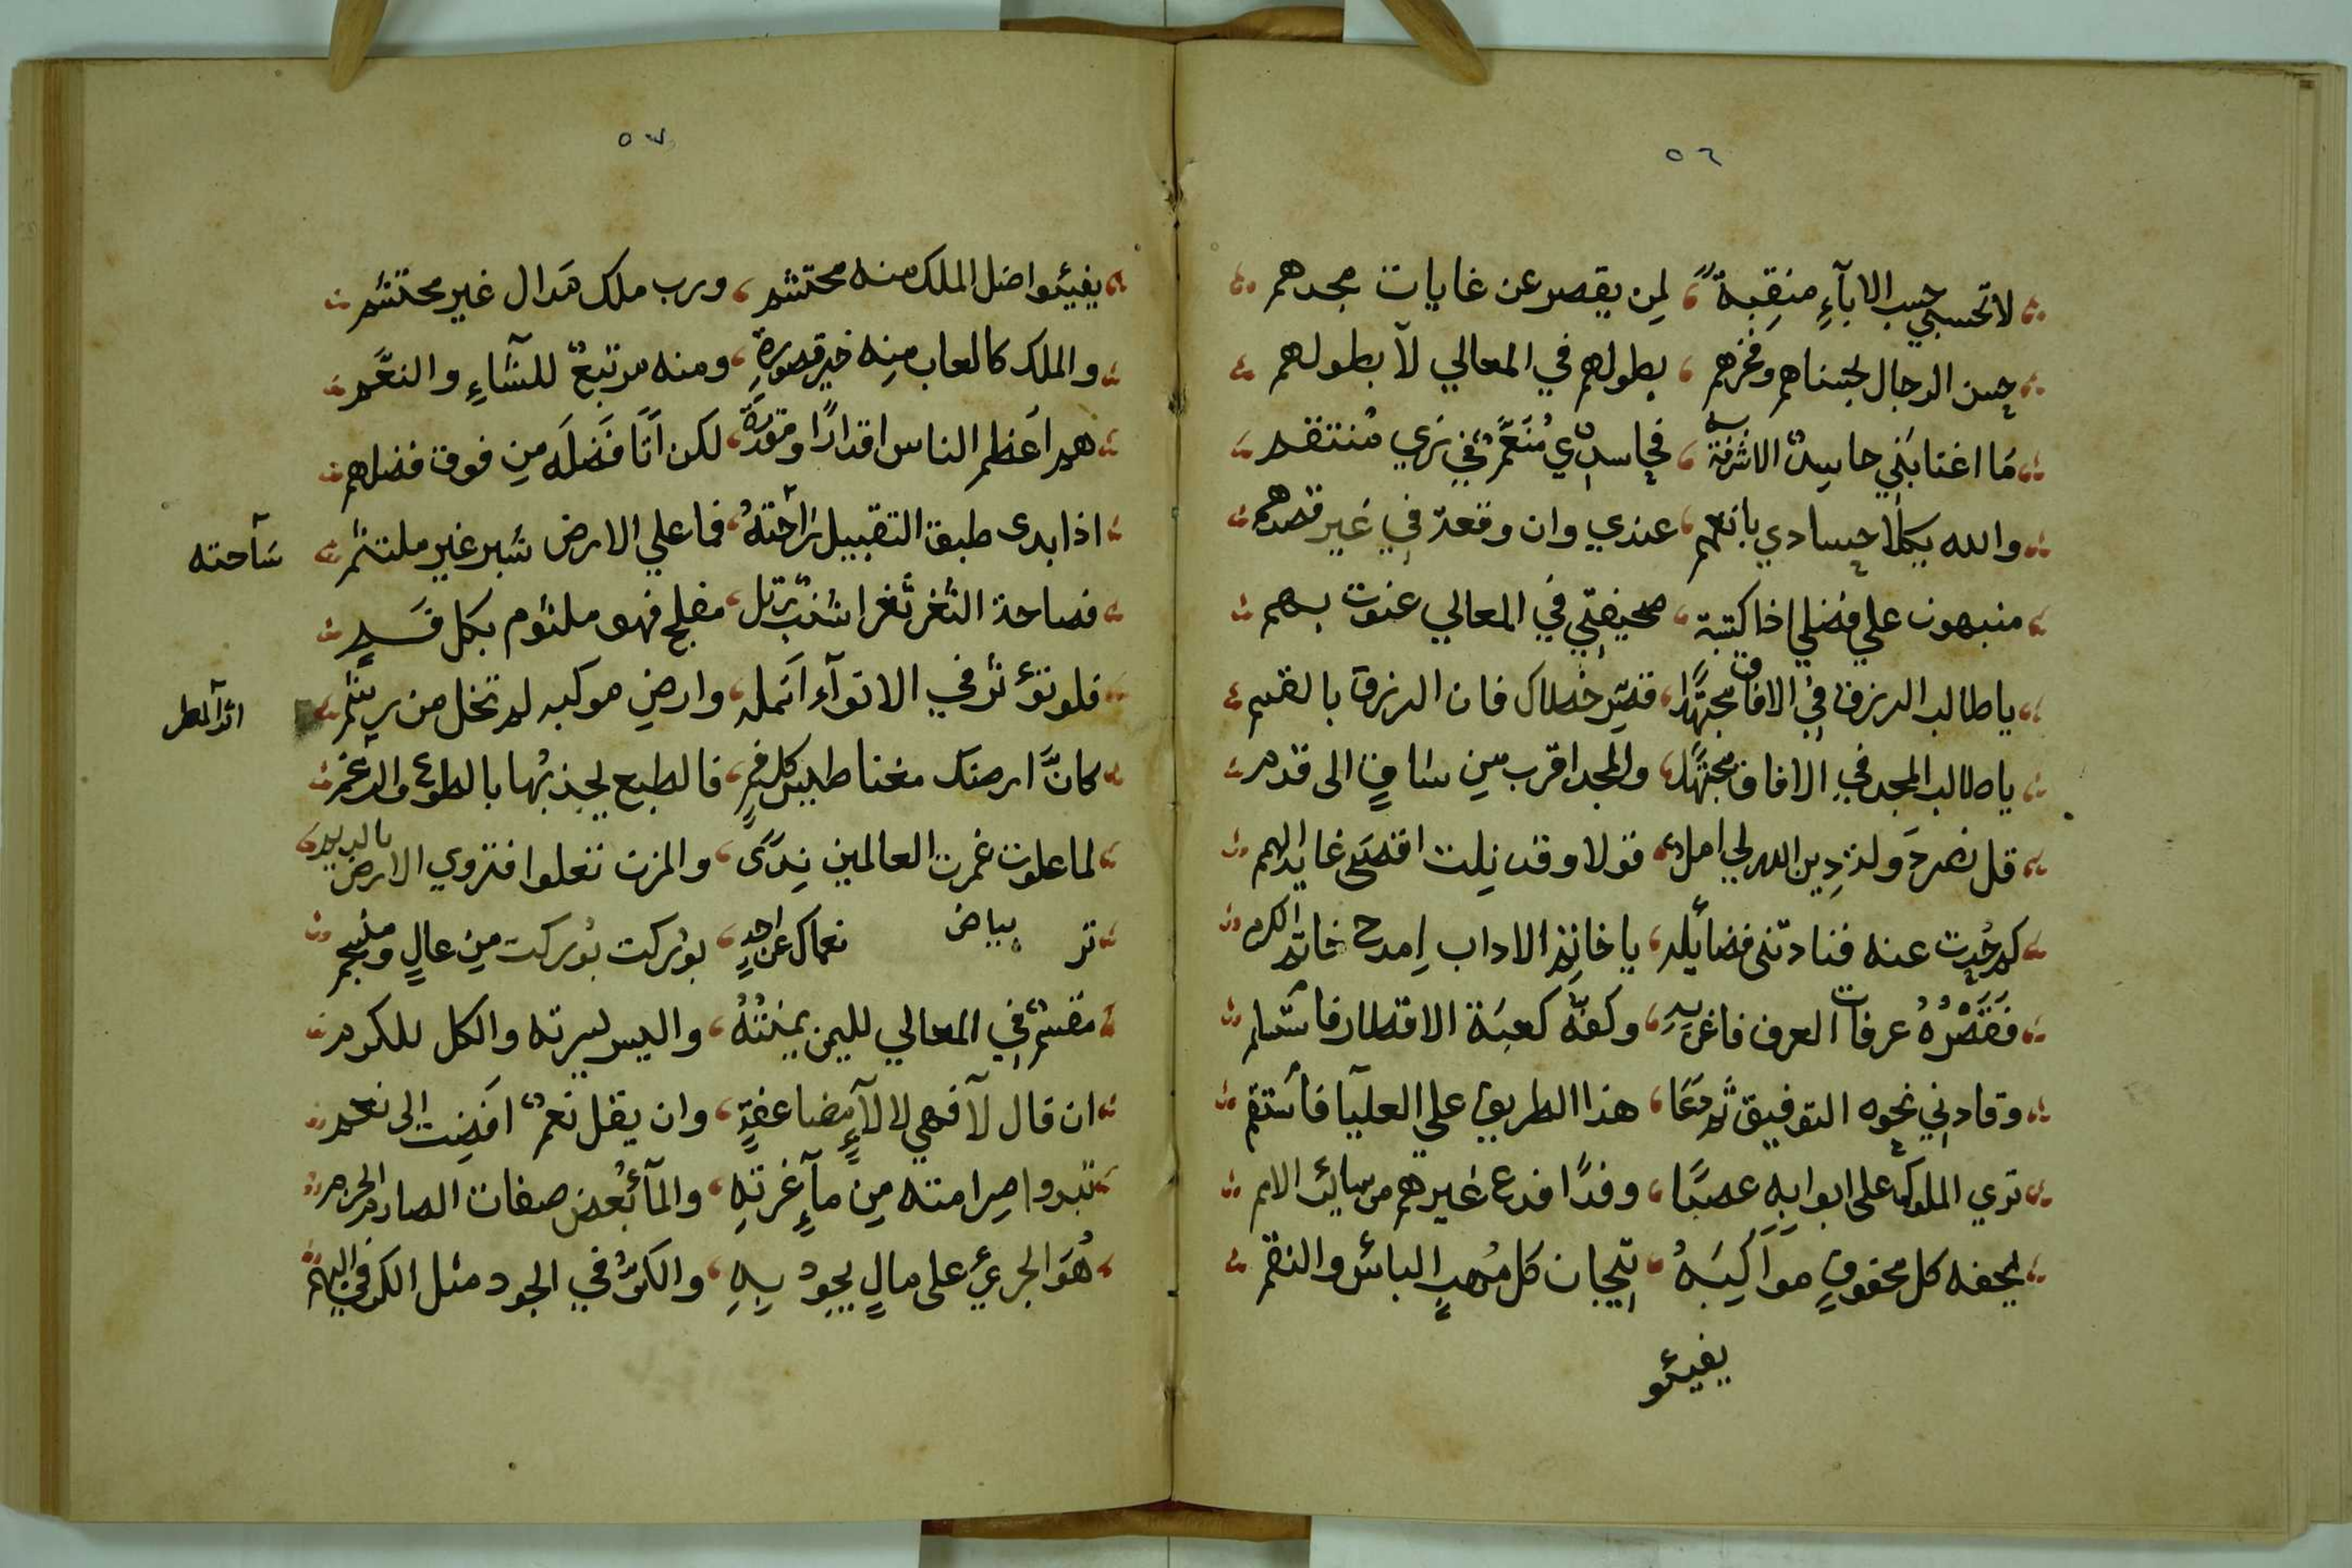 ٥٦
لا تحسبي حسب الابآءِ منقبةً لمن يقصر عن غايات مجدهم
حسن الرجال بحسناهم وفخرهم بطولهم في المعالي لا بطولهم
مَا اغتابني حاسدٌ الا شرفت به فحاسدي مُنعمٌ في زي منتقم
والله يكلأ حسادي بانعم عندي وان وقعة في غير قصدهم
منبهون علي فضلي اذا كتبة صحيفتي في المعالي عنوت بهم
يا طالب الرزق في الافاق مجتهدًا قصّر خطاك فان الرزق بالقسم
يا طالب المجد في الافاق مجتهدًا والمجد اقرب من ساقٍ الى قدم
قل نضر ولذ دين الله لي امل قولا وقد نلت اقصى غاية الهمم
كم حدت عنه فنادتنى فضائله يا خاتم الاداب امدح خاتم الكرم
فَقَصْرُهُ عرفات العرف فاغن به وكفّه كعبة الاقطار فاستلم
وقادني نحوه التوفيق ثم دعا هذا الطريق علي العليآ فأستقم
تري الملوك على ابوابه عصبًا وفدًا فدع غيرهم من سائر الامم
يحفه كل محفوفٍ مواكبَهُ تيجان كل مُهيب الباس والنقم
يفيئو
٥٧
يفيئوا ضل الملك منه محتشم ورب ملك هَدال غير محتشم
والملك كالعاب منه خير قصورة ومنه مرتبعٌ للشآءِ والنعَم
هم اعظم الناس اقدارًا ومقدرةً لكن اتا فَضلَه من فوق فضلهم
اذا بدى طبق التقبيل راحتهُ فما علي الارض شبر غير ملتثم
سَآحته
فصاحة الثغر ثغر اشنب رتل مفلج فهو ملثوم بكل فَم
فلو تؤثر في الانوآء انمله وارض موكبه لم تخل من رثم
اثر المطر
كانَّ ارضك مغناطيس كل فمٍ فالطبع يجذبها بالطوع والرغم
لما علوت غمرت العالمين ندًى والمزن تعلوا فتروي الارض بالديم
تر بياض نعماك عن احدٍ بوركت بوركت من عالٍ ومنسجم
مقسّم في المعالي لليمن يمنتهُ واليسر ليسرته والكل للكرم
ان قال لآ فهي لا لآءٍ مضاعفةٍ وان يقل نعمٌ افضت الى نعم
تبدوا صرامته من مآءِ غرتهِ والمآء بعض صفات الصارم الخرم
هُوَ الجريُ على مالٍ يجود بهِ والكرُّ في الجود مثل الكر في البهم